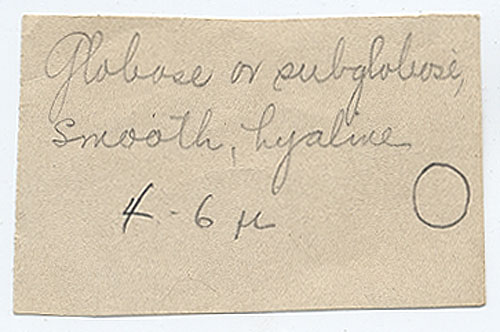 Globose or subglobose,
smooth, hyaline
4-6 μ